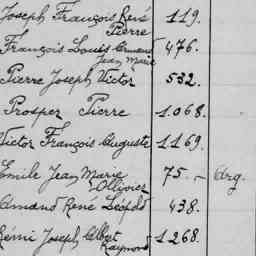 Joseph François René 119.
Pierre
François Louis Armand 476.
Jean Marie
Pierre Joseph Victor 532.
Prosper Pierre 1.068.
Victor François Auguste 1169.
Emile Jean Marie 75. - Arg.
Ollivier
Armand René Léopold 438.
Rémi Joseph Albert 1268.
Raymond